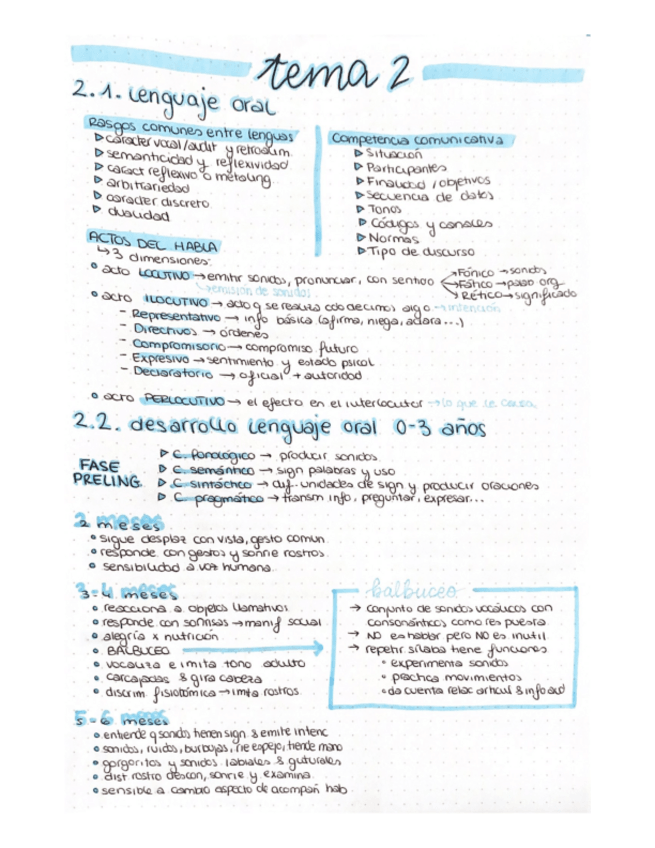 tema 2
2.1. lenguaje oral
Rasgos comunes entre lenguas
▷ caracter vocal/audit y retroalim.
▷ semanticidad y reflexividad
▷ caract reflexivo o metaling
▷ arbitrariedad
▷ caracter discreto
▷ dualidad
Competencia comunicativa
▷ Situación
▷ Participantes
▷ Finalidad / objetivos
▷ Secuencia de datos
▷ Tonos
▷ Códigos y canales
▷ Normas
▷ Tipo de discurso
ACTOS DEL HABLA
↳ 3 dimensiones:
• acto LOCUTIVO → emitir sonidos, pronunciar, con sentido
emisión de sonidos
→ Fónico → sonidos
→ Fático → paso org
→ Rético → significado
• acto ILOCUTIVO → acto q se realiza cdo decimos algo → intención
- Representativo → info básica (afirma, niega, aclara...)
- Directivos → órdenes
- Compromisorio → compromiso futuro
- Expresivo → sentimiento y estado psicol
- Declaratorio → oficial + autoridad
• acto PERLOCUTIVO → el efecto en el interlocutor → lo que le causa
2.2. desarrollo lenguaje oral 0-3 años
FASE
PRELING
▷ C. fonológico → producir sonidos
▷ C. semántico → sign palabras y uso
▷ C. sintáctico → dif. unidades de sign y producir oraciones
▷ C. pragmático → transm info, preguntar, expresar...
2 meses
• sigue desplaz con vista, gesto comun
• responde con gestos y sonrie rostros
• sensibilidad a voz humana
3-4 meses
• reacciona a objetos llamativos
• responde con sonrisas → manif social
• alegría x nutrición
• BALBUCEO
• vocaliza e imita tono adulto
• carcajadas & gira cabeza
• discrim fisionómica → imita rostros
balbuceo
→ conjunto de sonidos vocálicos con
consonánticos como respuesta
→ NO es hablar pero NO es inutil
→ repetir sílaba tiene funciones
• experimenta sonidos
• practica movimientos
• da cuenta relac articul & info aud
5-6 meses
• entiende q sonidos tienen sign & emite intenc
• sonidos, ruidos, burbujas, rie espejo, tiende mano
• gorgoritos y sonidos labiales & guturales
• dist rostro descon, sonrie y examina
• sensible a cambio aspecto de acompañ hab